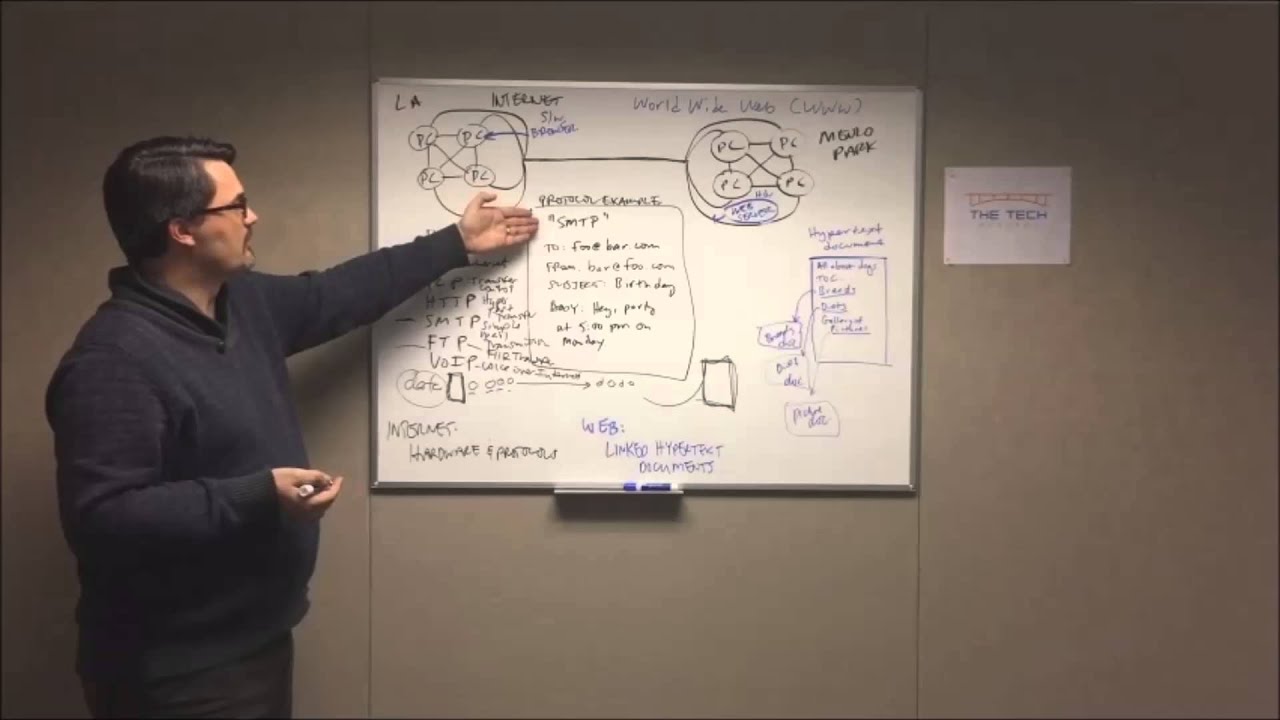 LA
INTERNET
World Wide Web (WWW)
S/W
BROWSER
PC
PC
PC
PC
PC
PC
PC
PC
MENLO
PARK
H/W
WEB
SERVER
PROTOCOL EXAMPLE
"SMTP"
TO: foo@bar.com
FROM: bar@foo.com
SUBJECT: Birthday
BODY: Hey, party
at 5:00 pm on
Monday
Transfer
HTTP Hyper
Text
Transfer
SMTP Simple
FTP
VOIP - Voice over Internet
data
INTERNET:
HARDWARE & PROTOCOLS
WEB:
LINKED HYPERTEXT
DOCUMENTS
Hypertext
document
All about dogs
TOC
Breeds
Diets
Gallery of
Pictures
Breeds
doc
Diets
doc
Picture
doc
THE TECH